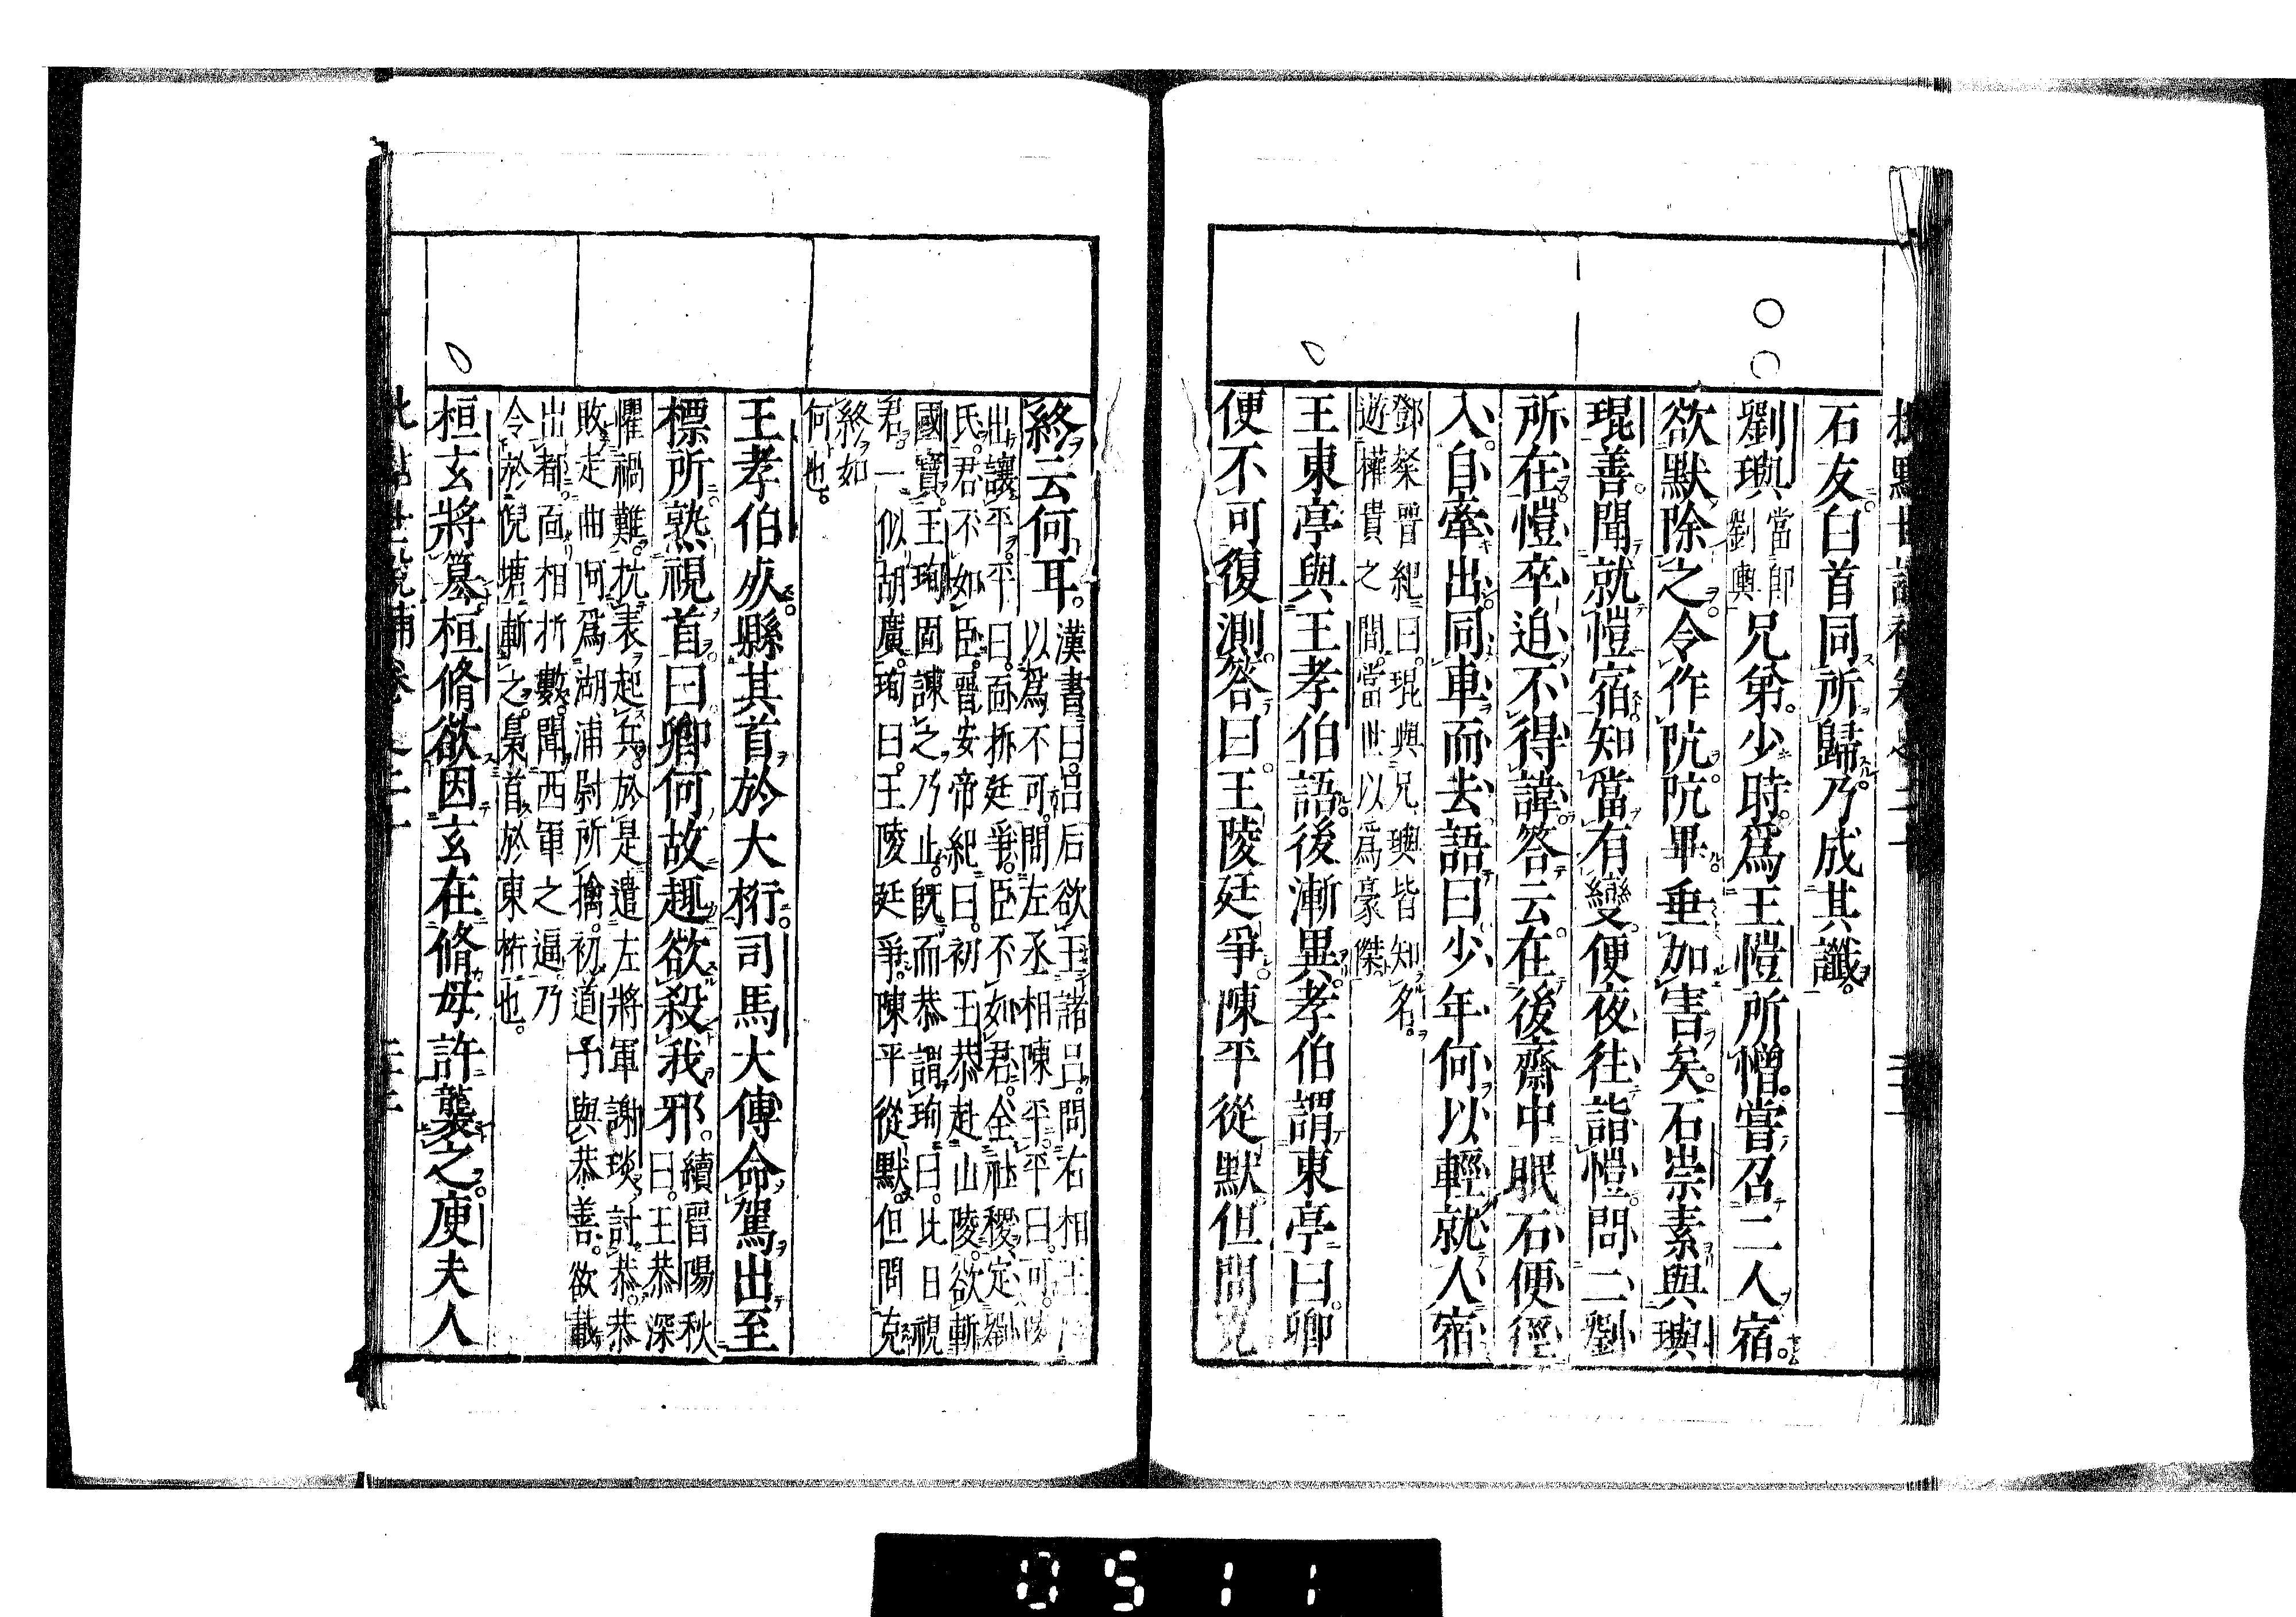 石友。白首同所歸。乃成其讖。
劉璵當卽劉輿兄弟。少時。爲王愷所憎。嘗召二人宿。
欲默除之。令作阬。阬畢。垂加害矣。石崇素與璵
琨善。聞就愷宿。知當有變。便夜往詣愷。問二劉
所在。愷卒迫不得諱。答云。在後齋中眠。石便徑
入。自牽出。同車而去。語曰。少年何以輕就人宿
鄧粲晉紀曰。琨與兄璵皆知名。
遊權貴之間。當世以爲豪傑。
王東亭與王孝伯語。後漸異。孝伯謂東亭曰。卿
便不可復測。答曰。王陵廷爭。陳平從默。但問克
終云何耳。
漢書曰。呂后欲王諸呂。問右相王
以爲不可。問左丞相陳平。平曰。可。
出讓平。平曰。面折廷爭。臣不如君。全社稷。定劉
氏。君不如臣。晉安帝紀曰。初王恭赴山陵。欲斬
國寶。王珣固諫之。乃止。旣而恭謂珣曰。比日視
君。一似胡廣。珣曰。王陵廷爭。陳平從默。但問克
終如
何也。
王孝伯死。縣其首於大桁。司馬大傅命駕出至
標所。熟視首曰。卿何故趣欲殺我邪。
續晉陽秋
曰。王恭深
懼禍難。抗表起兵。於是遣左將軍謝琰討恭。恭
敗走曲阿。爲湖浦尉所擒。初道子與恭善。欲載
出都。面相折數。聞西軍之逼。乃
令於倪塘斬之。梟首於東桁也。
桓玄將篡。桓脩欲因玄在脩母許襲之。庾夫人